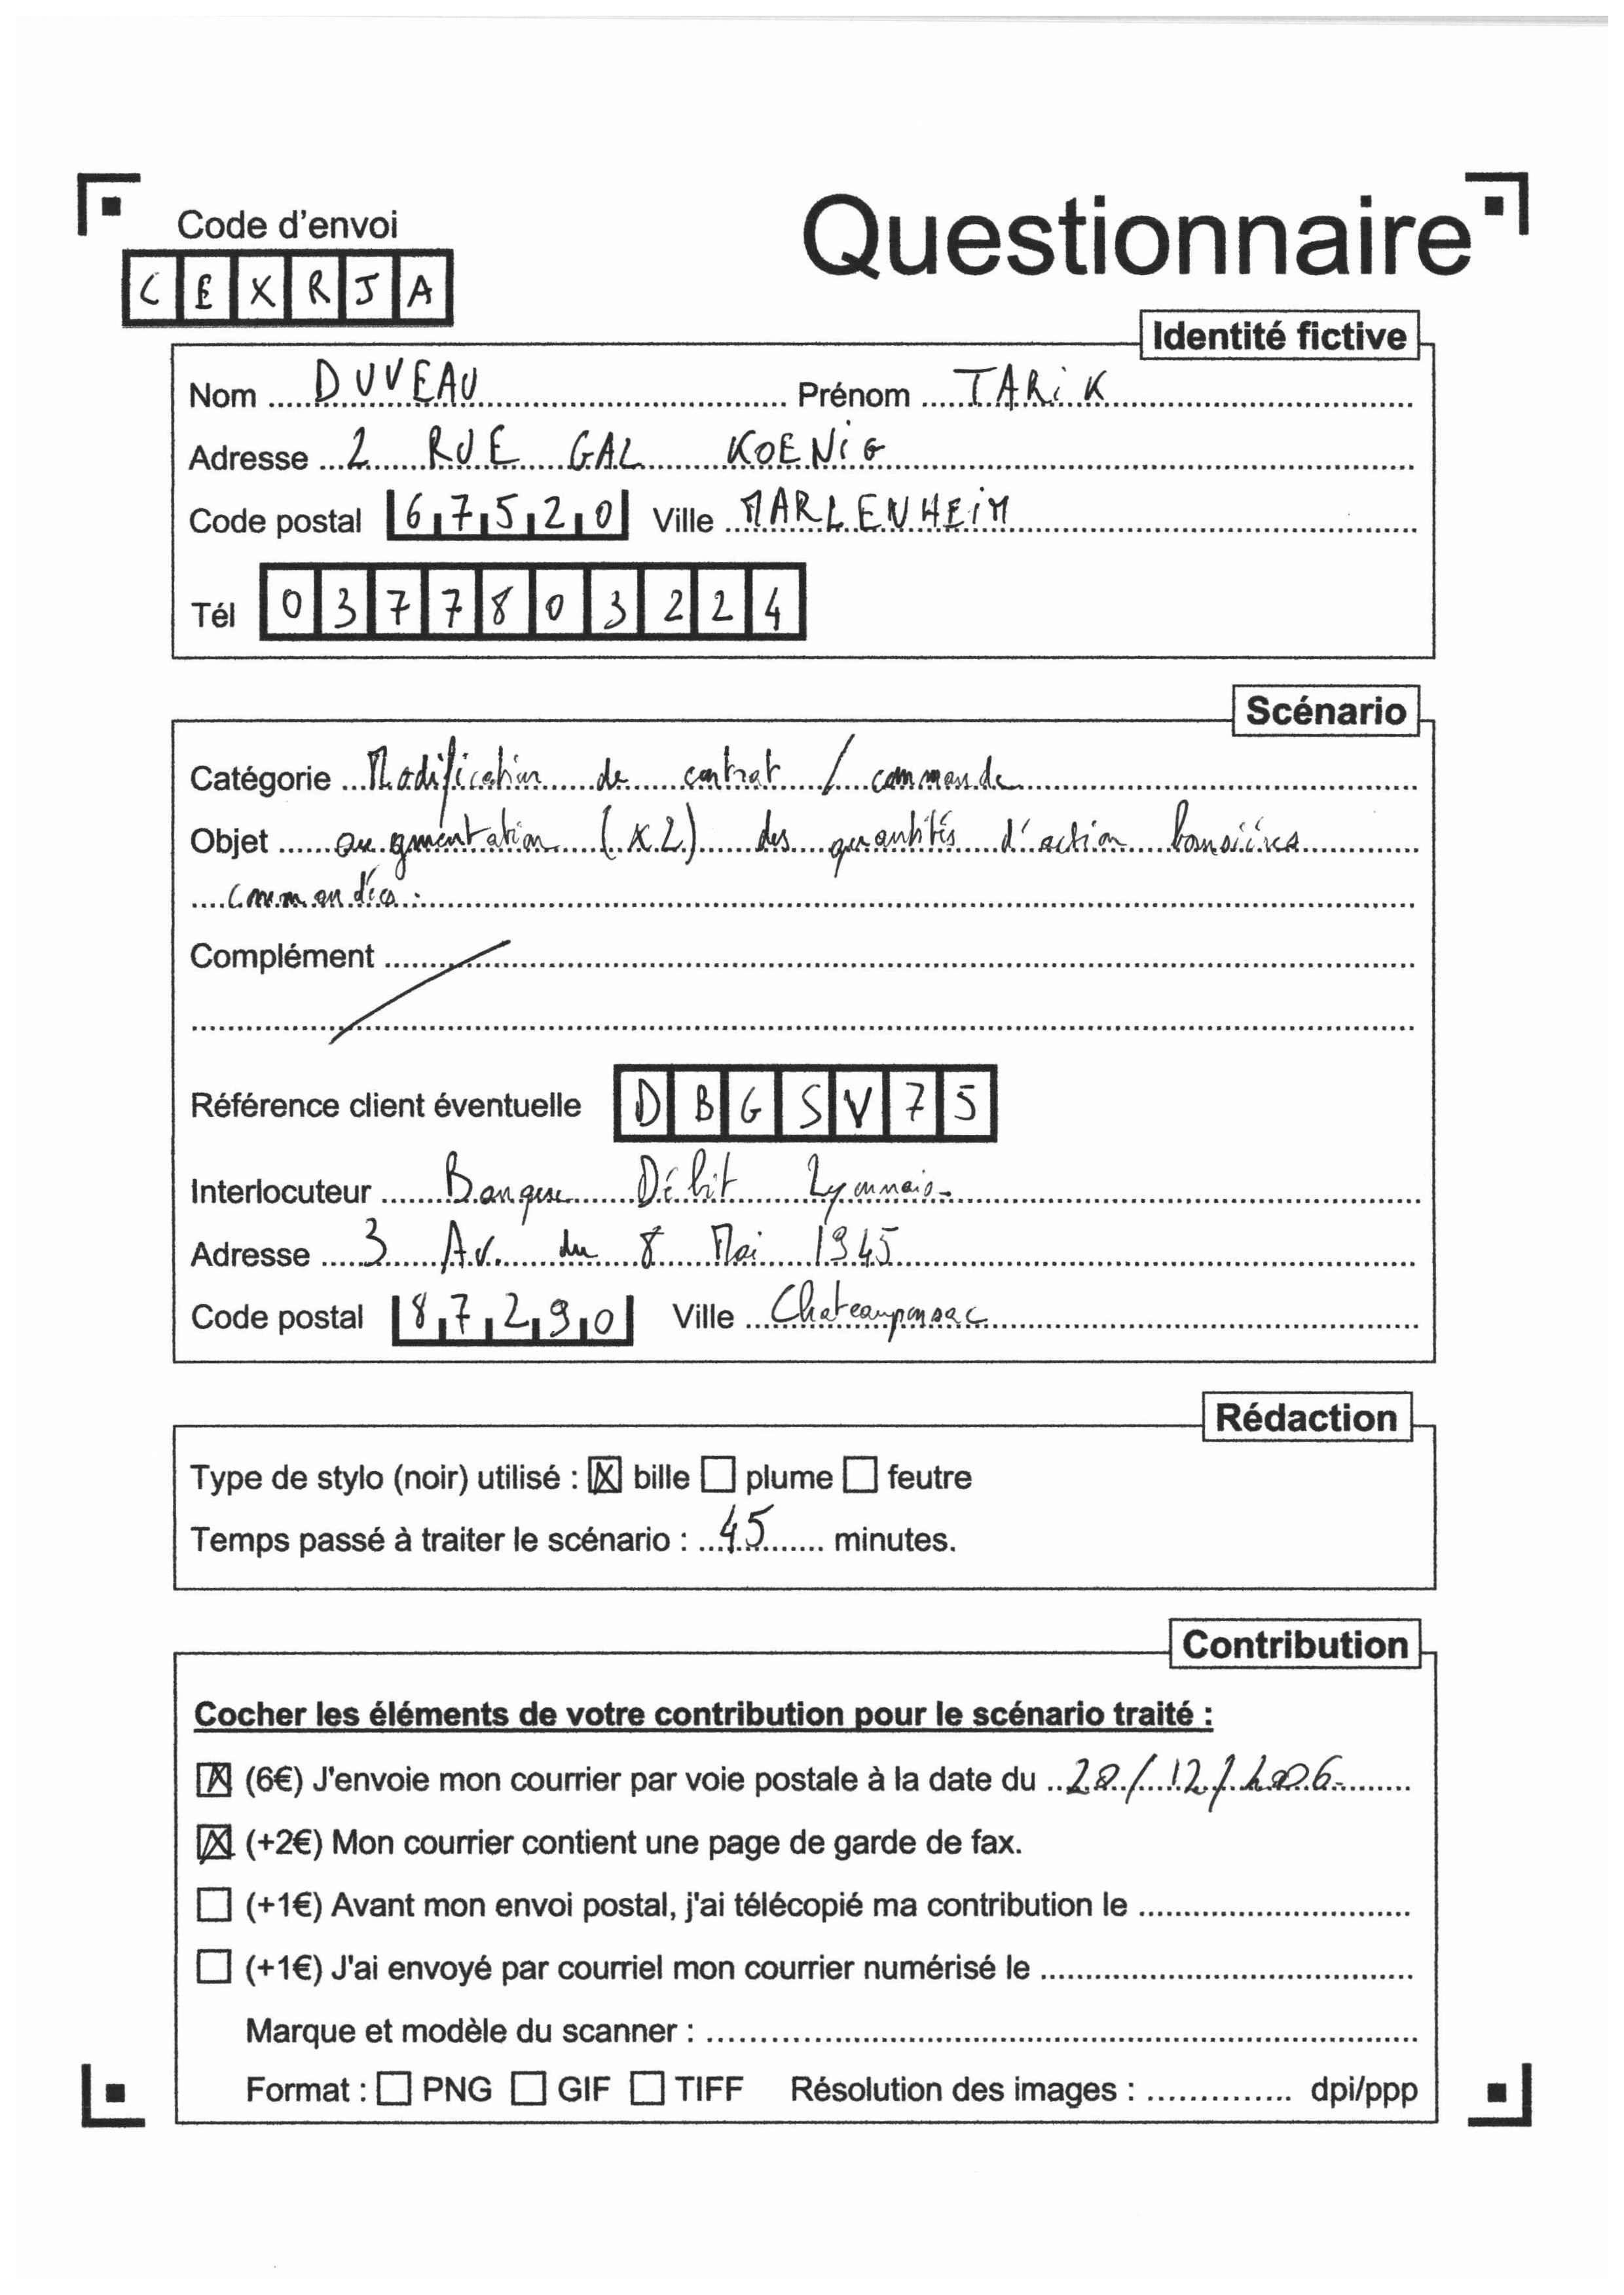 Code d'envoi
Questionnaire
CEXRJA
Identité fictive
Nom DUVEAU Prénom TARiK
Adresse 2 RUE GAL KOENiG
Code postal 67520 Ville MARLENHEiM
Tél 0377803224
Scénario
Catégorie Modification de contrat / commande
Objet augmentation (x2) des quantités d'action boursières
commandées.
Complément
Référence client éventuelle DBGSV75
Interlocuteur Banque Débit Lyonnais.
Adresse 3 Av. du 8 Mai 1945
Code postal 87290 Ville Chateauponsac
Rédaction
Type de stylo (noir) utilisé : ☒ bille ☐ plume ☐ feutre
Temps passé à traiter le scénario : 45 minutes.
Contribution
Cocher les éléments de votre contribution pour le scénario traité :
☒ (6€) J'envoie mon courrier par voie postale à la date du 28/12/2006
☒ (+2€) Mon courrier contient une page de garde de fax.
☐ (+1€) Avant mon envoi postal, j'ai télécopié ma contribution le
☐ (+1€) J'ai envoyé par courriel mon courrier numérisé le
Marque et modèle du scanner :
Format : ☐ PNG ☐ GIF ☐ TIFF Résolution des images : dpi/ppp